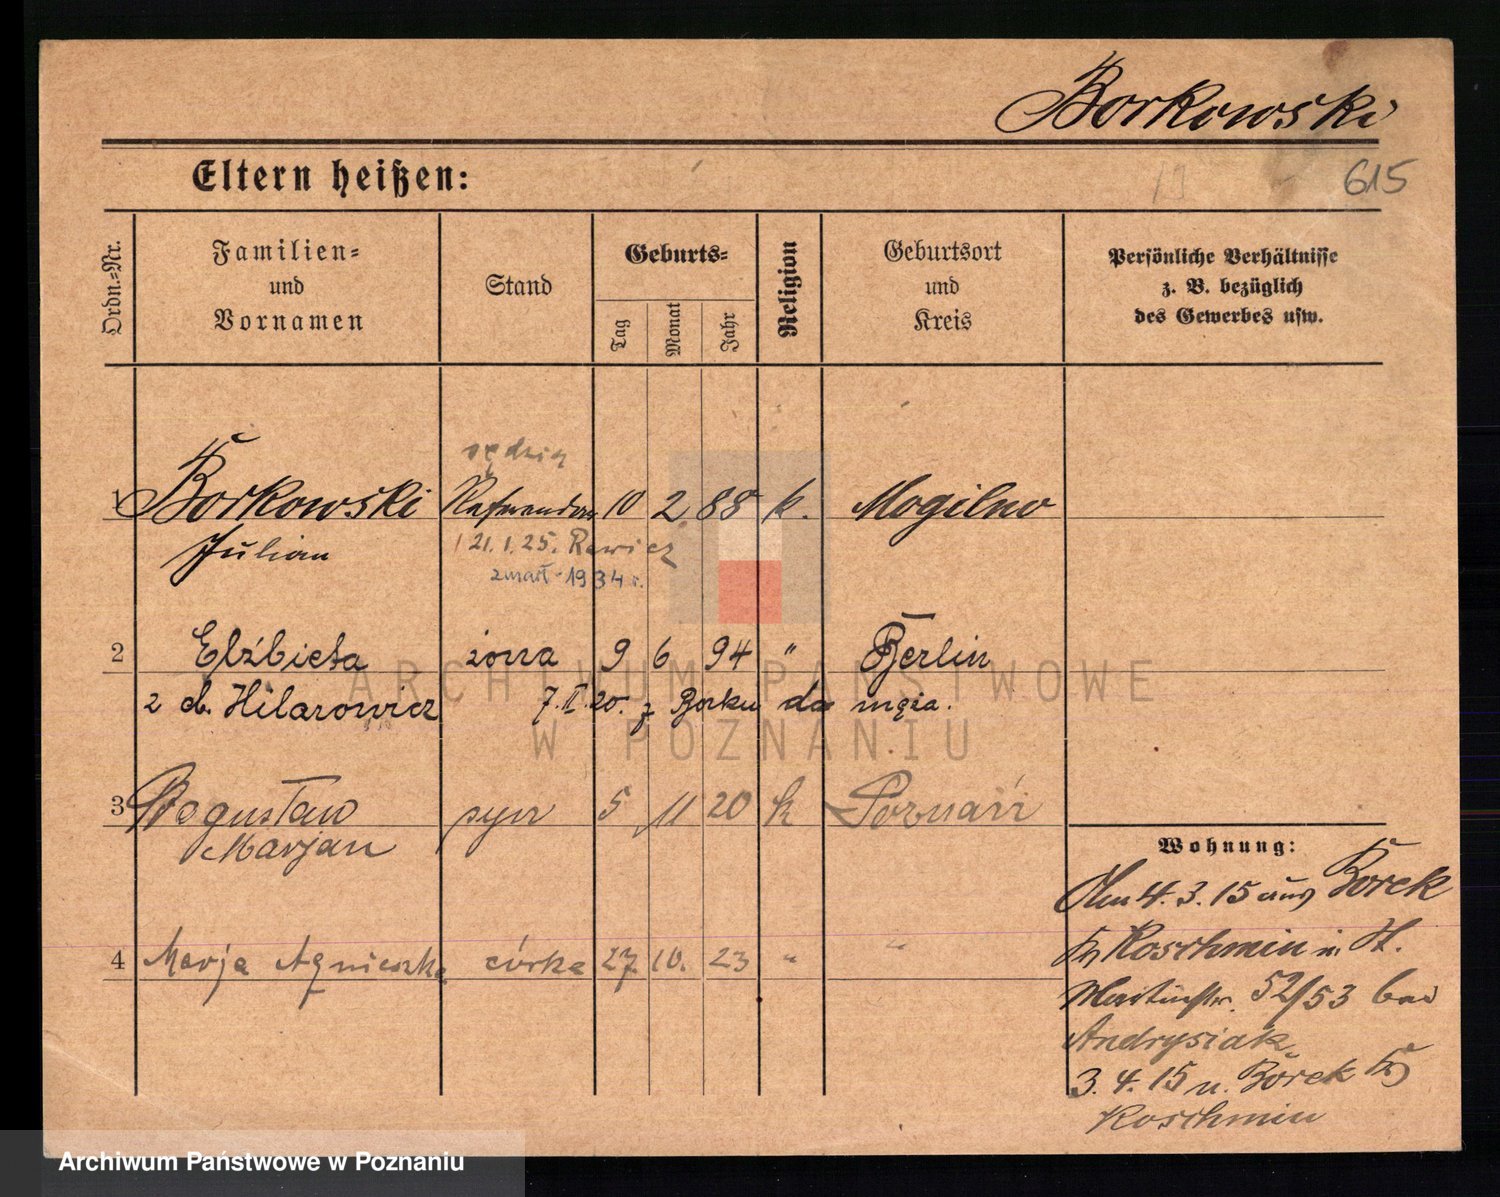 Borkowski
Eltern heißen:
615
Ordn.=Nr.
Familien=
und
Vornamen
Stand
Geburts=
Tag
Monat
Jahr
Religion
Geburtsort
und
Kreis
Persönliche Verhältnisse
z. B. bezüglich
des Gewerbes usw.
sędzia
1 Borkowski Referendar 10 2 88 k. Mogilno
Julian
21.1.25. Rawicz
zmarł 1934 r.
2 Elżbieta żona 9 6 94 " Berlin
z d. Hilarowicz 7.II.20. z Borku do męża.
3 Bogusław syn 5 11 20 k Poznań
Marjan
4 Marja Agnieszka córka 27. 10. 23 " "
Wohnung:
Am 4.3.15 aus Borek
Kr. Koschmin n. H.
Martinstr. 52/53 bei
Andrysiak
3.4.15 n. Borek Kr.
Koschmin
ARCHIWUM PAŃSTWOWE
W POZNANIU
Archiwum Państwowe w Poznaniu